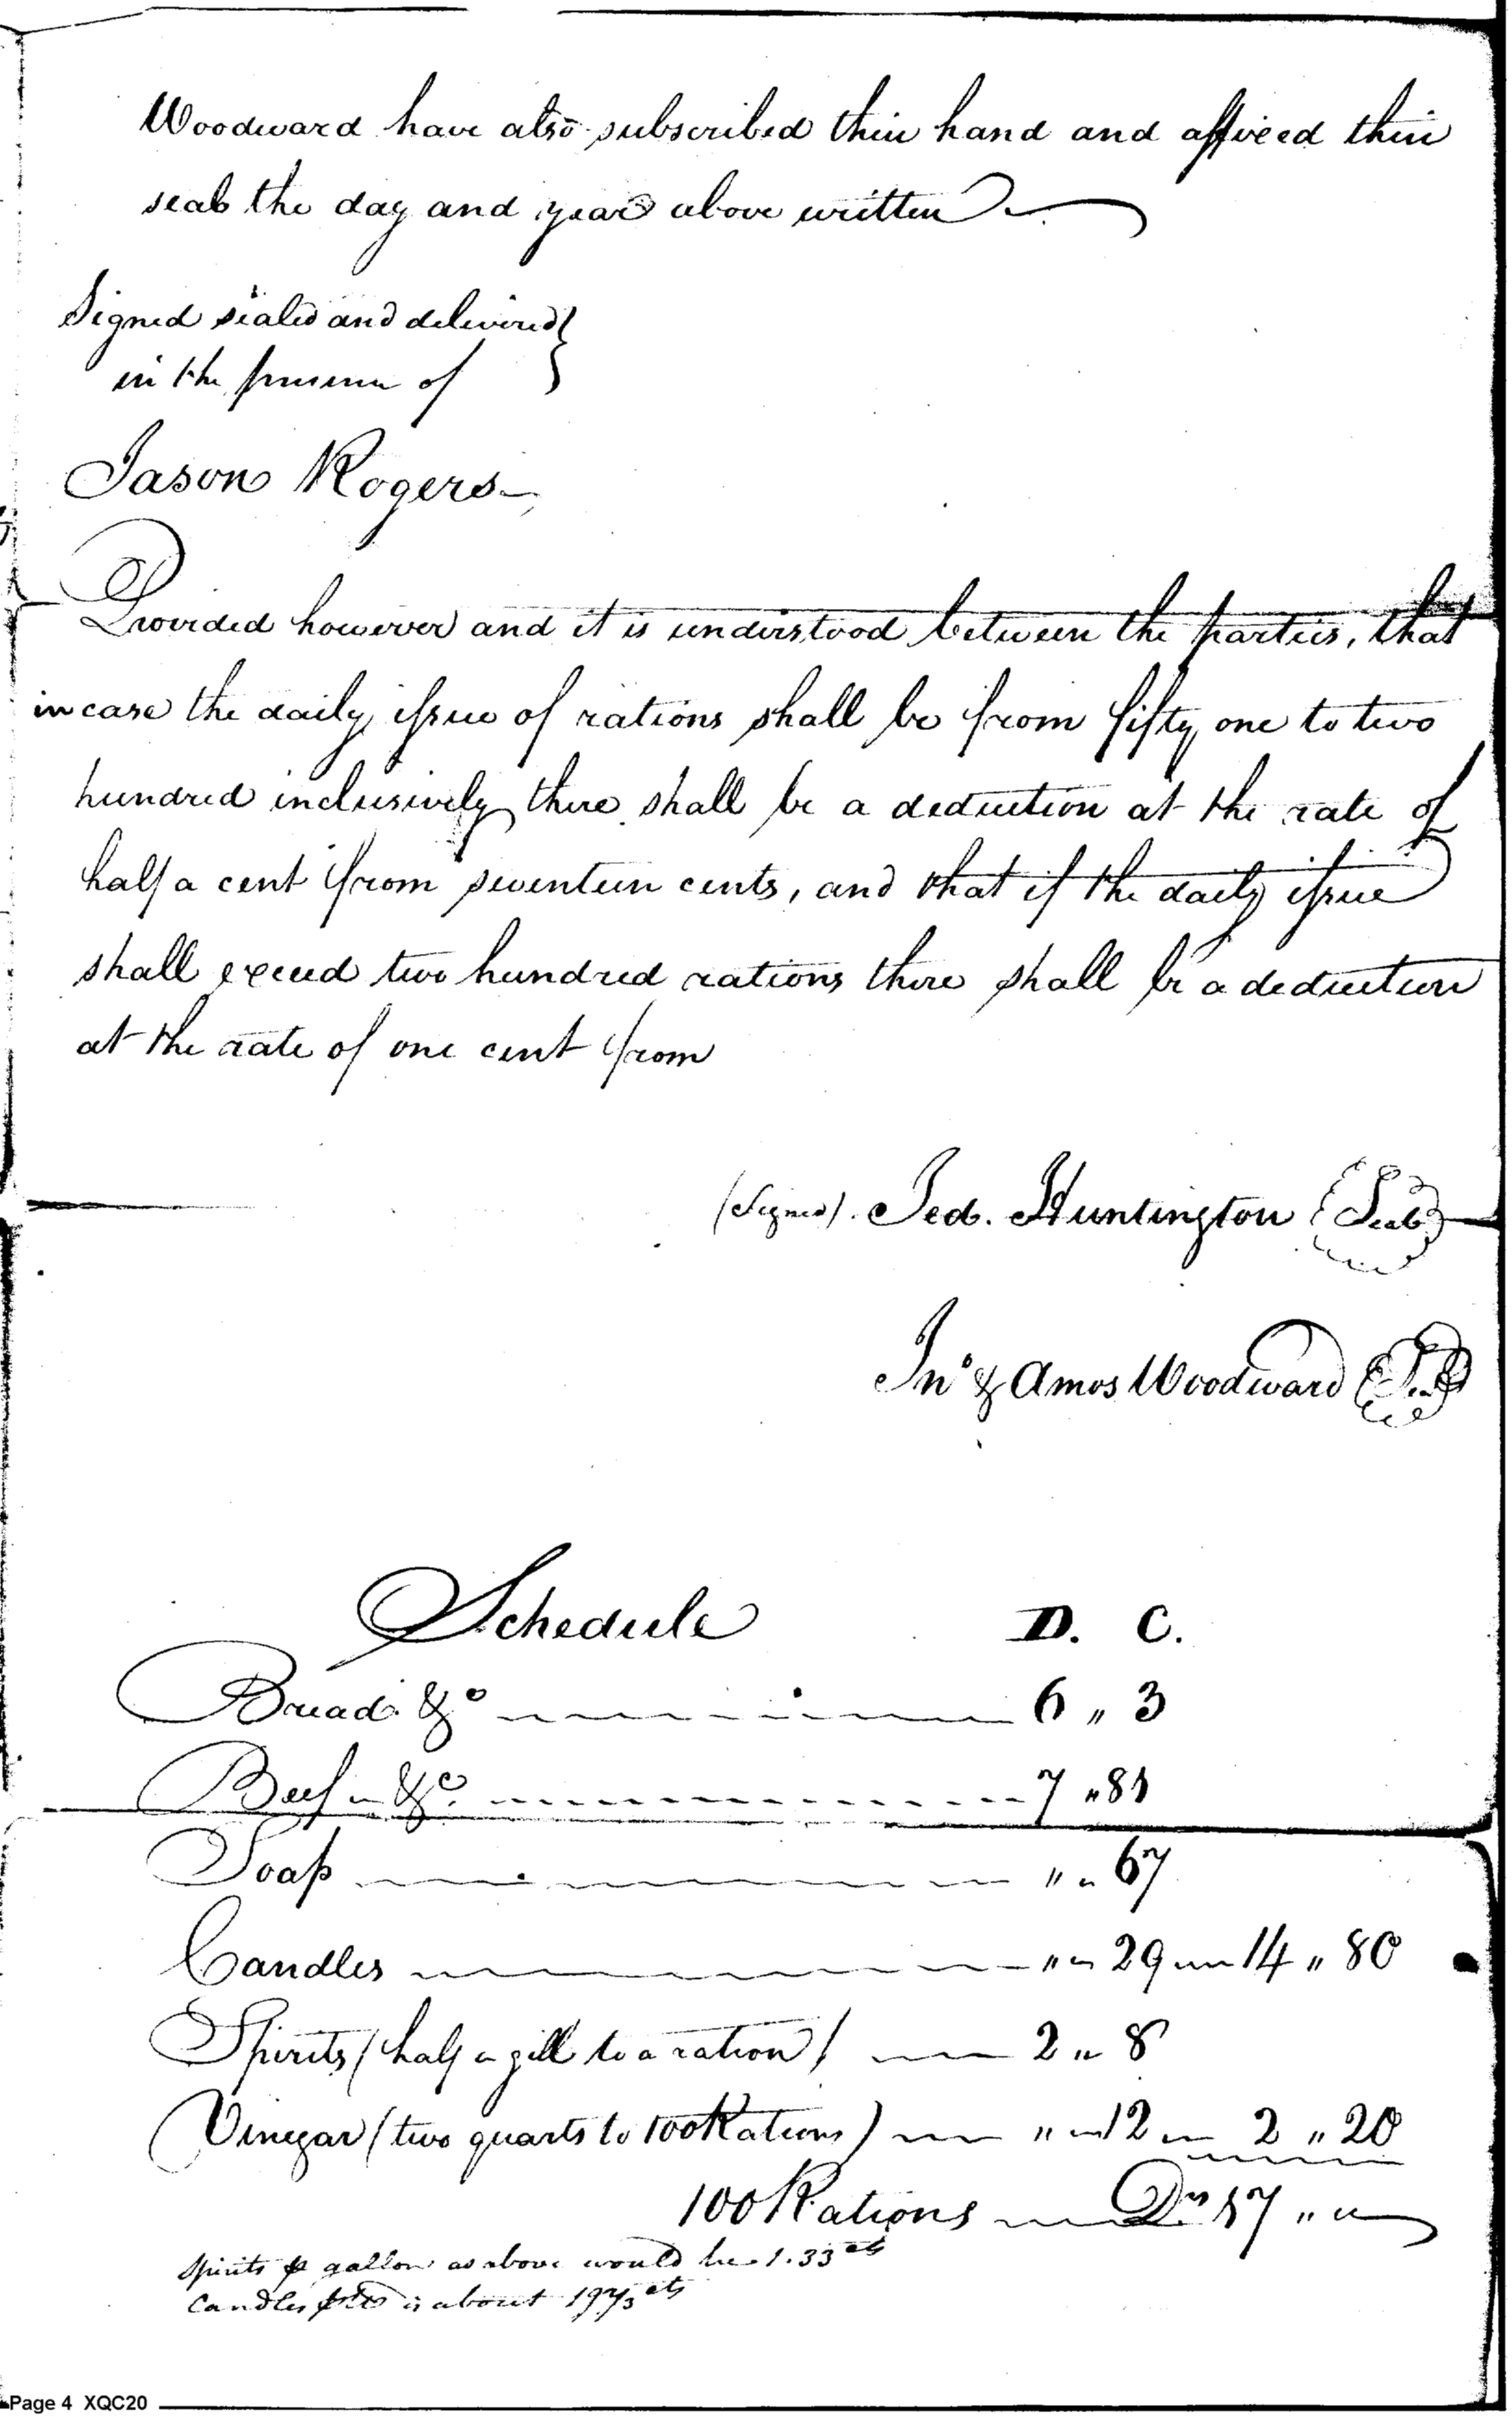 Woodward have also subscribed their hand and affixed their
seal the day and year above written
Signed sealed and delivered }
in the presence of
Jason Rogers
Provided however and it is understood between the parties, that
in case the daily issue of rations shall be from fifty one to two
hundred inclusively there shall be a deduction at the rate of
half a cent from seventeen cents, and that if the daily issue
shall exceed two hundred rations there shall be a deduction
at the rate of one cent from
(Signed). Jed. Huntington Seal
Jno & Amos Woodward Seal
Schedule D. C.
Bread &c 6 " 3
Beef &c. 7 " 81
Soap " " 67
Candles " " 29 14 " 80
Spirits (half a gill to a ration) 2 " 8
Vinegar (two quarts to 100 Rations) " " 12 2 " 20
100 Rations Drs 17 " "
Spirits p gallon as above would be 1.33 cts
Candles is about 19 cts
Page 4 XQC20